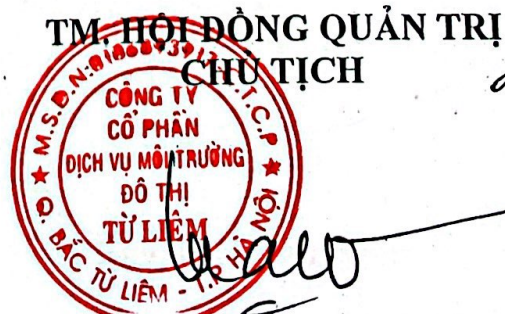 TM. HỘI ĐỒNG QUẢN TRỊ
CHỦ TỊCH
CÔNG TY
CỔ PHẦN
DỊCH VỤ MÔI TRƯỜNG
ĐÔ THỊ
TỪ LIÊM
M.S.D.N: C.T.C.P
Q. BẮC TỪ LIÊM - T.P HÀ NỘI